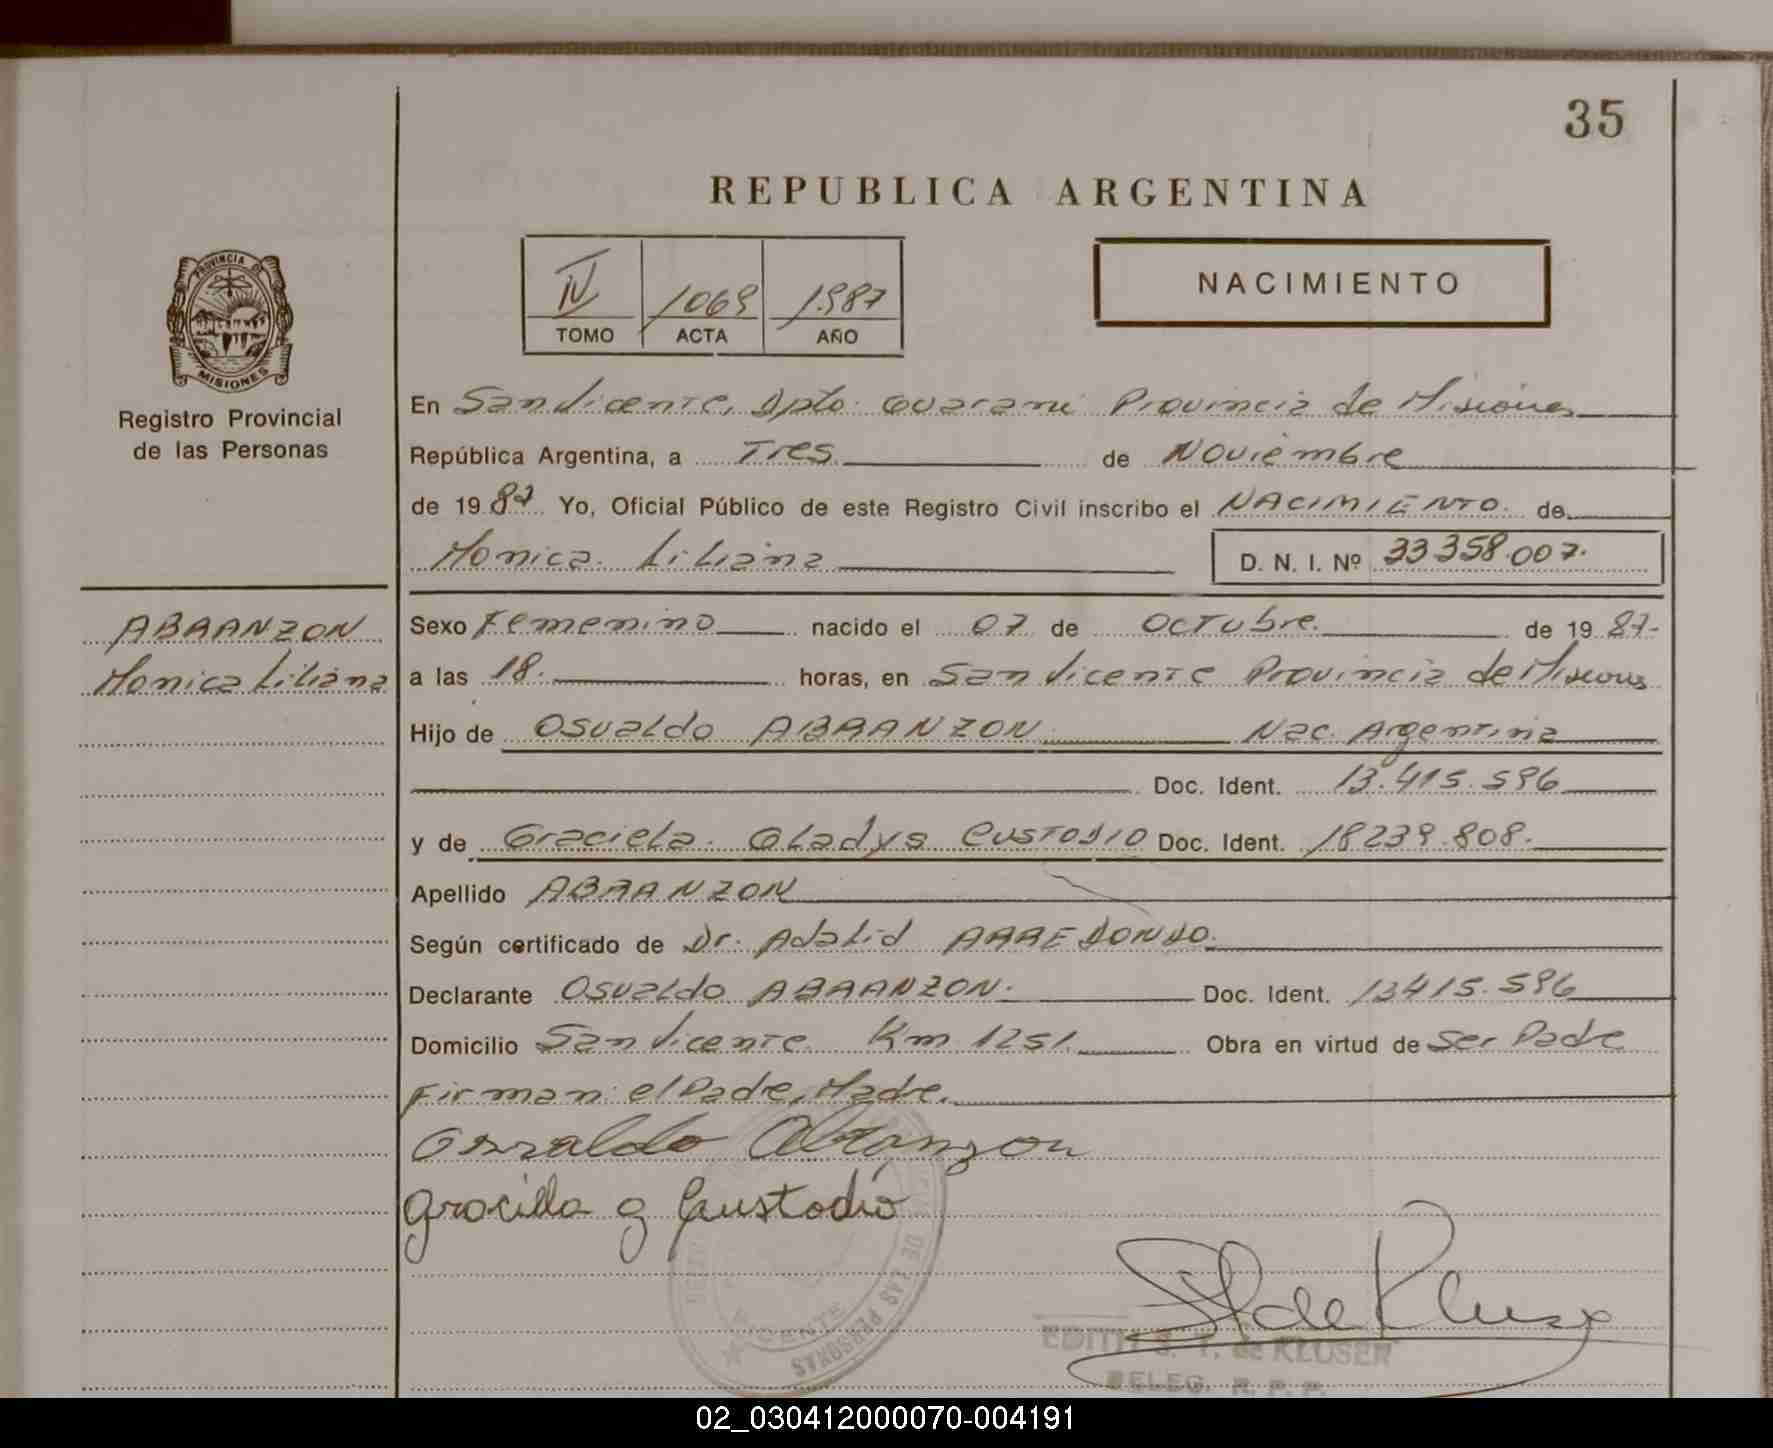 35
REPUBLICA ARGENTINA
IV 1069 1987
TOMO ACTA AÑO
NACIMIENTO
PROVINCIA DE
MISIONES
Registro Provincial
de las Personas
En San Vicente, Dpto. Guarani Provincia de Misiones
República Argentina, a Tres de Noviembre
de 1987 Yo, Oficial Público de este Registro Civil inscribo el NACIMIENTO. de
Monica Liliana D. N. I. Nº 33358.007.
ABRANZON
Monica Liliana
Sexo Femenino nacido el 07 de Octubre. de 1987-
a las 18. horas, en San Vicente Provincia de Misiones
Hijo de Osvaldo ABRANZON Nac. Argentina
Doc. Ident. 13.415.596
y de Graciela Gladys CUSTODIO Doc. Ident. 18239.808.
Apellido ABRANZON
Según certificado de Dr. Adalid ARREDONDO.
Declarante Osvaldo ABRANZON. Doc. Ident. 13415.596
Domicilio San Vicente Km 1251. Obra en virtud de Ser Padre
Firman: el Padre, Madre.
Osvaldo Abranzon
Graciela G Custodio
DE LAS PERSONAS
VICENTE
EDITH S. T. de KLUSER
DELEG. R. P. P.
02_030412000070-004191